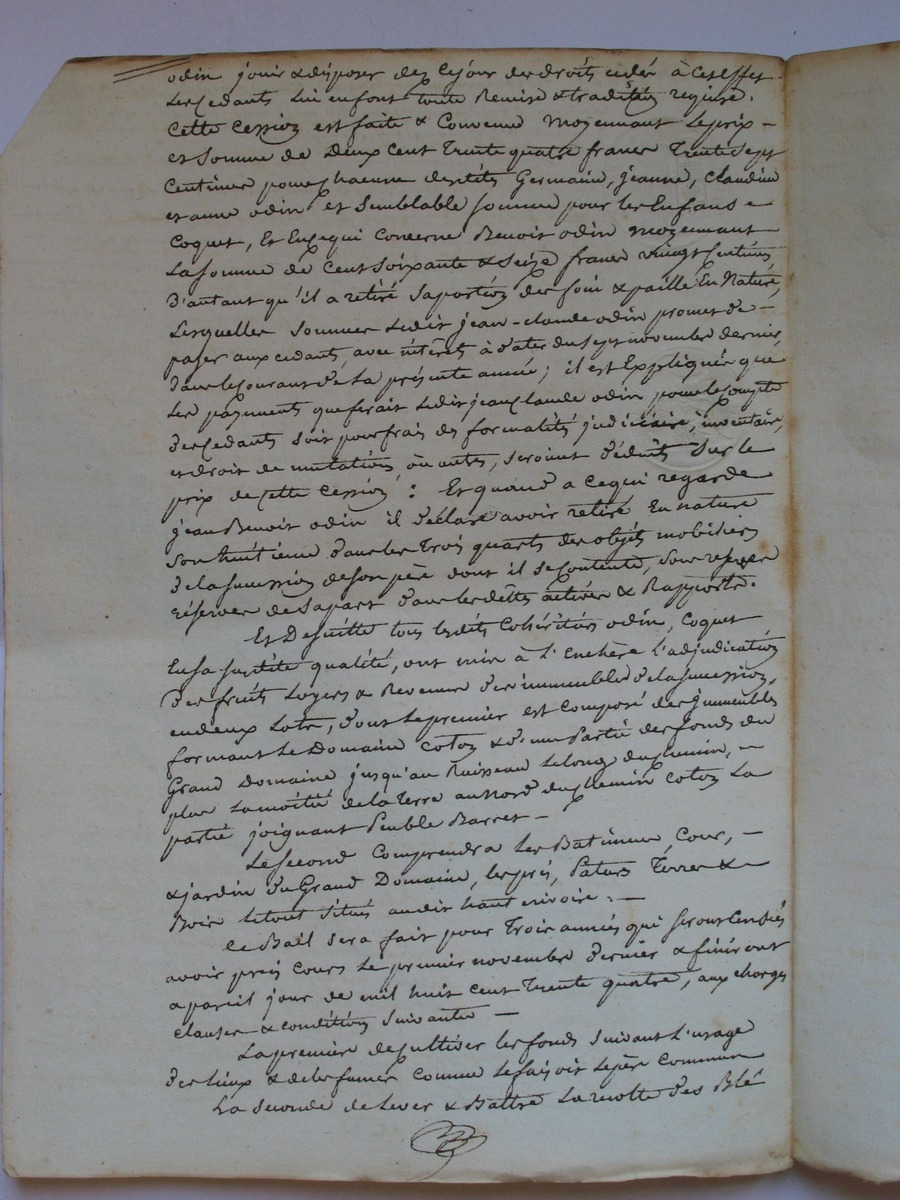 odin jouir & disposer dez ce jour des droits cédés à cet effet
les cedants lui en font toute Remise & tradition requise.
Cette cession est faite & Convenue moyennant le prix –
et somme de Deux Cent Trente quatre francs Trente sept
Centimes pour chacune desdits Germain, jeanne, Claudine
et anne odin et semblable somme pour les Enfans –
Coquet, Et En ce qui Concerne Benoit odin moyennant
La somme de Cent soixante & seize francs vingt Centimes,
d'autant qu'il a retiré sa portion des foin & paille En Nature,
Lesquelles sommes ledit jean-claude odin promet de –
payer aux cedants, avec intérêts à dater du sept novembre dernier,
dans le Courant de La présente année; il est Expliquée que
Les payments que ferait ledit jean Claude odin pour le Compte
des Cedants soit pour frais de formalités judiciaire, inventaire,
et droit de mutation ou autres, seroient déduits sur le
prix de cette Cession : Et quand a ce qui regarde
jean Benoit odin il déclare avoir retiré En nature
son huitième dans les Trois quarts des objets mobiliers
de la succession de son père dont il se Contente, sous
réserves de sa part dans les dettes actives & Rapports.
Et De suitte tous lesdits Cohéritiers odin, Coquet
En sa susdite qualité, ont mis à L'Enchère L'adjudication
des fruits Loyers & Revenus des immeubles de la succession,
en deux Lots, dont Le premier est Composé des jmmeubles
formant Le Domaine coton & d'une Partie des fonds du
Grand Domaine jusqu'au Ruisseau Le long du chemin, –
plus La moitié de la Terre au nord du chemin coton La
partie joignant Peuble Barret –
Le second Comprendra Les Batimens, Cour, –
& jardin du Grand Domaine, les prés, Paturs Terres & –
Bois le tout situés audit haut rivoire. –
Ce Bail sera fait pour Trois années qui seront Censées
avoir pris Cours Le premier novembre dernier & finiront
a pareil jour de mil huit cent Trente quatre, aux charges
clauses & conditions suivantes –
La première de Cultiver les fonds suivant L'usage
des lieux & de les fumer comme Le faisoit Le père commun
La seconde de Lever & Battre La récolte des Blé